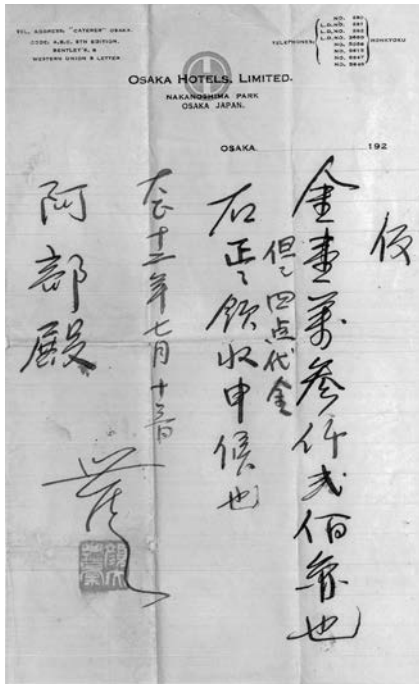 TEL. ADDRESS: "CATERER" OSAKA.
CODE: A.B.C. 5TH EDITION,
BENTLEY'S, &
WESTERN UNION 5 LETTER
TELEPHONES: HONKYOKU
OSAKA HOTELS, LIMITED.
NAKANOSHIMA PARK
OSAKA JAPAN.
OSAKA 192
仮
金壹萬参仟弐佰也
但シ四点代金
右正ニ領収申候也
大正十二年七月十三日
阿部殿